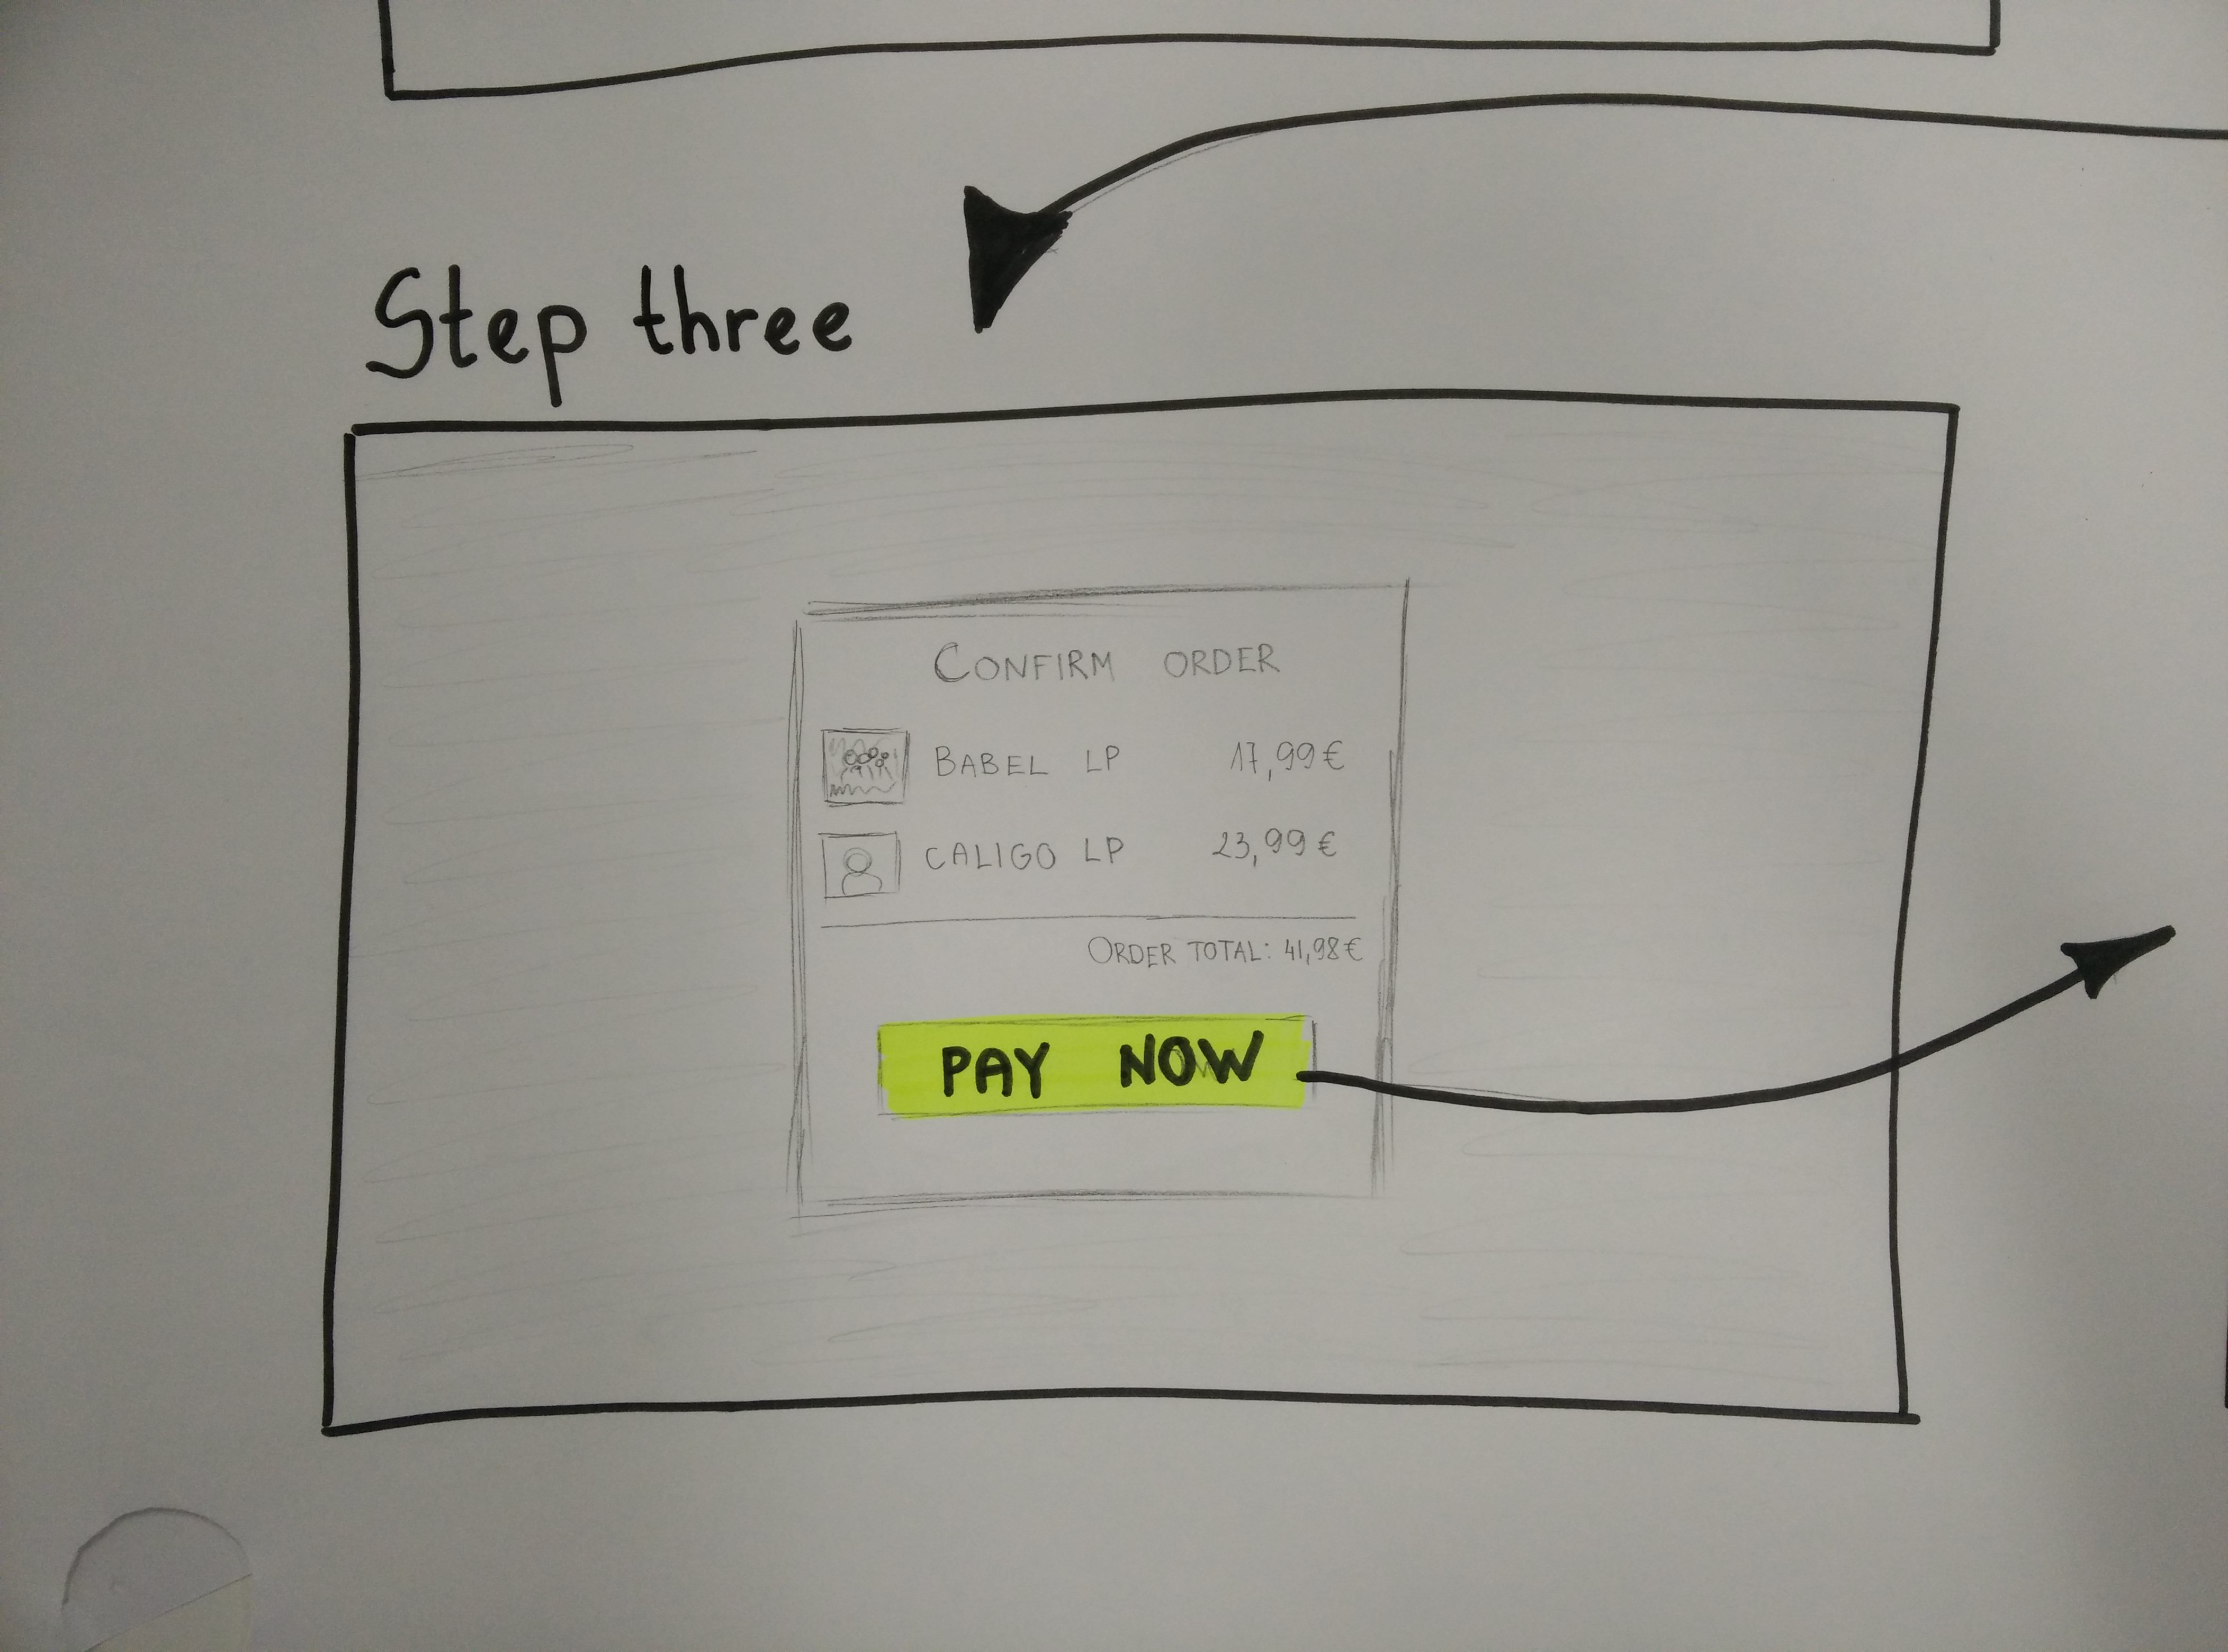 Step three
CONFIRM ORDER
BABEL LP 17,99€
CALIGO LP 23,99€
ORDER TOTAL: 41,98€
PAY NOW